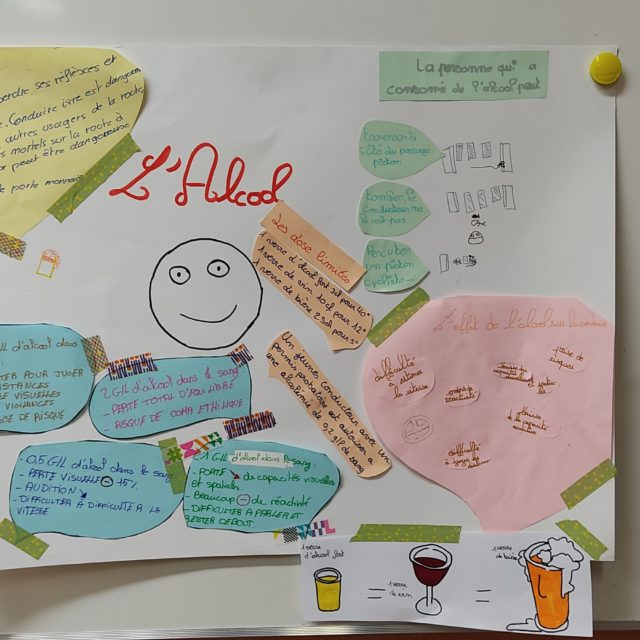 perdre ses réflexes et
Conduire ivre est dangereux
autres usagers de la route,
mortels sur la route à
peut être dangereuse
porte monnaie
L'Alcool
La personne qui a
consomé de l'alcool peut
traverser à
côté du passage
piéton
tomber, le
conducteur ne
le voit pas
Percuter
un piéton
cycliste...
Les dose limites
1 verre d'alcool fort 3cl pour 40°
1 verre de vin 10cl pour 12°
1 verre de bière 25cl pour 5°
Un jeunes conducteur avec un
permis probatoire est autoriser a
une alcoolémie de 0,2 g/l de sang
L'effet de l'alcool sur la conduite
difficulté
vitesse
prise de
risques
difficulté
G/L d'alcool dans
POUR JUGER
DISTANCES
VISUELLES
DE RISQUE
2 G/L d'alcool dans le sang
- PERTE TOTAL D'EQUILIBRE
- RISQUE DE COMA ETHILIQUE.
0.5 G/L d'alcool dans le sang
- PERTE VISUELLE - 15%
- AUDITION ↘
- DIFFICULTER À
LA
VITESSE
1 G/L d'alcool dans le sang:
- FORTE ↘ de capacités visuelles
et spatiales
- Beaucoup - de réactivité
- DIFFICULTER A PARLER ET
RESTER DEBOUT.
1 verre
d'alcool fort
=
1 verre
de vin
=
1 verre
de bière